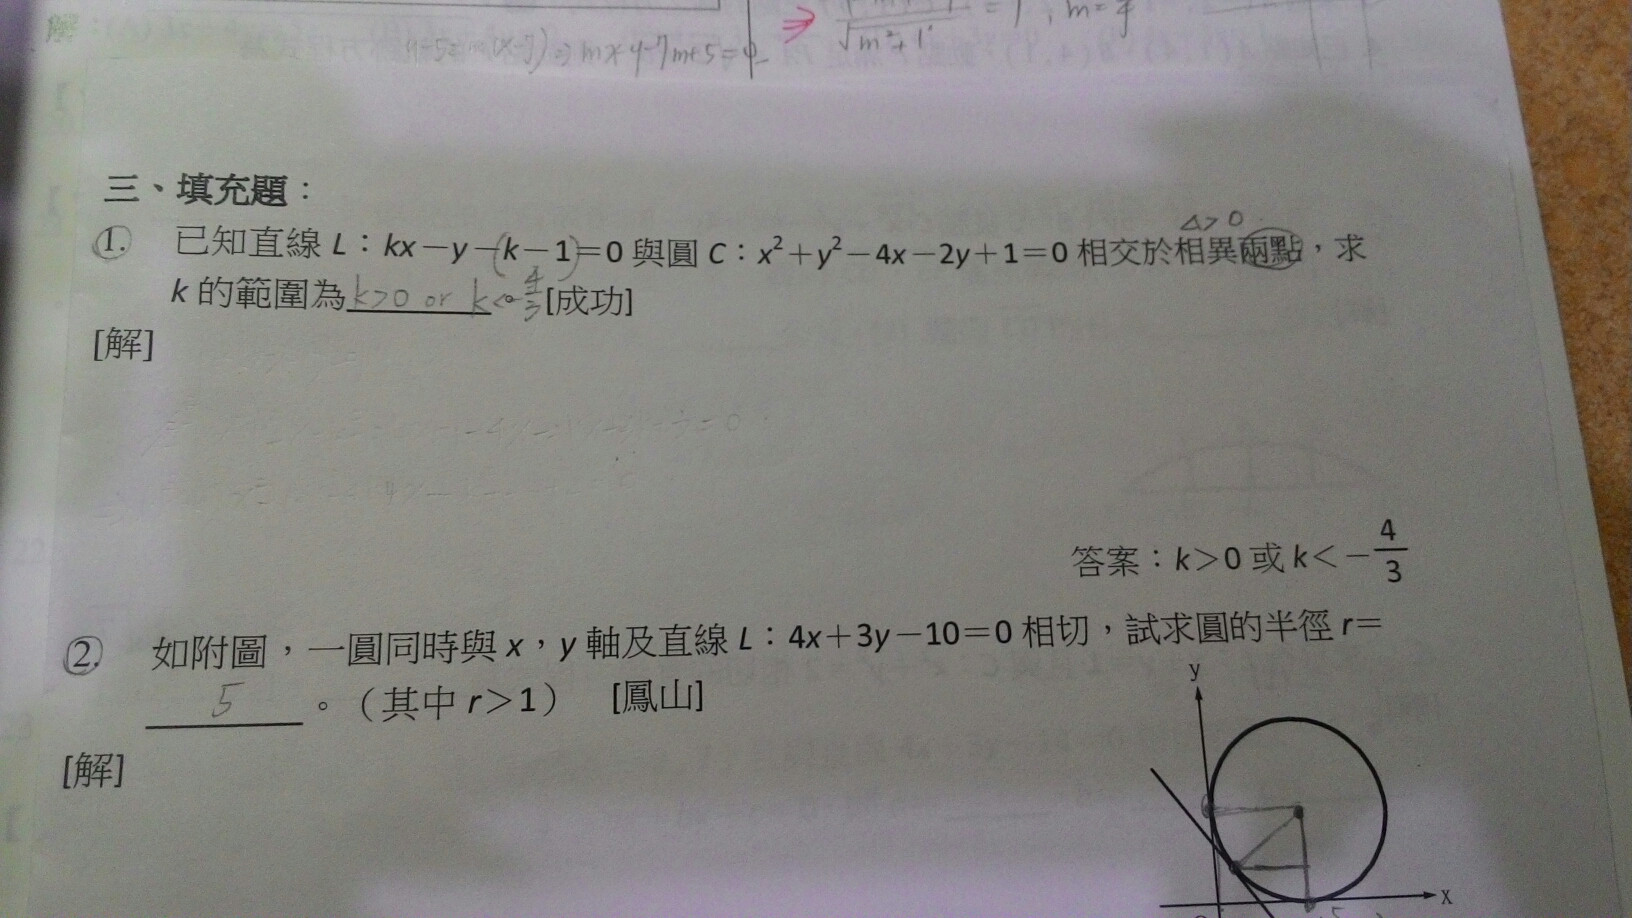 ⇒ √m²+1 = 1, m=
(x-7) ⇒ mx-y-7m+5=0
三、填充題：
1. 已知直線 L：kx－y－(k－1)=0 與圓 C：x²＋y²－4x－2y＋1＝0 相交於相異兩點，求
△>0
k 的範圍為 k>0 or k<-4/3 [成功]
[解]
答案：k＞0 或 k＜－4/3
2. 如附圖，一圓同時與 x，y 軸及直線 L：4x＋3y－10＝0 相切，試求圓的半徑 r＝
5 。（其中 r＞1） [鳳山]
[解]
y
x